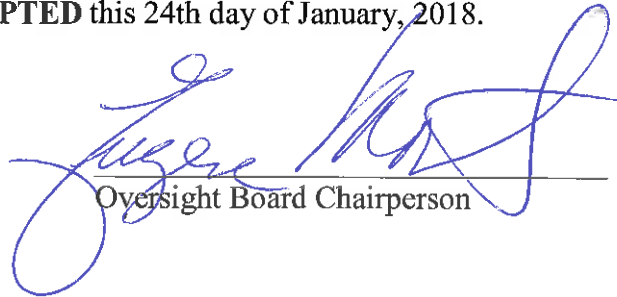 PTED this 24th day of January, 2018.
Eugene
Oversight Board Chairperson